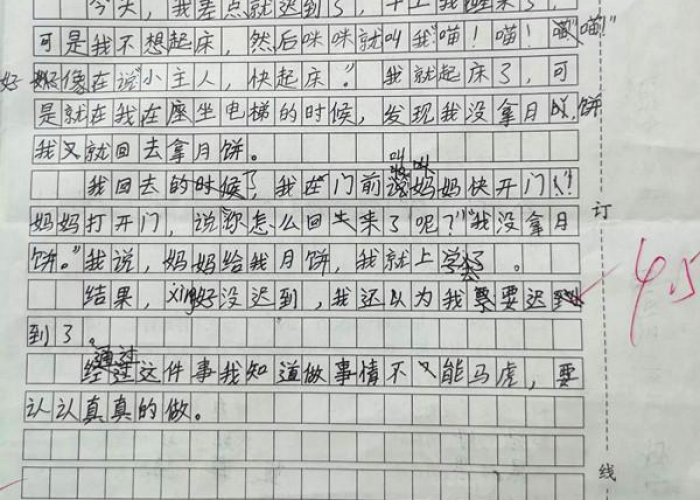 今天，我差点就迟到了，早上我醒来了，
可是我不想起床，然后咪咪就叫我“喵！喵！喵！”
好像在说“小主人，快起床。”我就起床了，可
是就在我在座坐电梯的时候，发现我没拿月饼，
我又就回去拿月饼。
我回去的时候，我在门前叫妈妈快开门！
妈妈打开门，说“你怎么回失来了呢？”“我没拿月
饼。”我说，妈妈给我月饼，我就上学去了。
结果，xing好没迟到，我还以为我要迟
到了。
通过这件事我知道做事情不能马虎，要
认认真真的做。
订
线
4.5